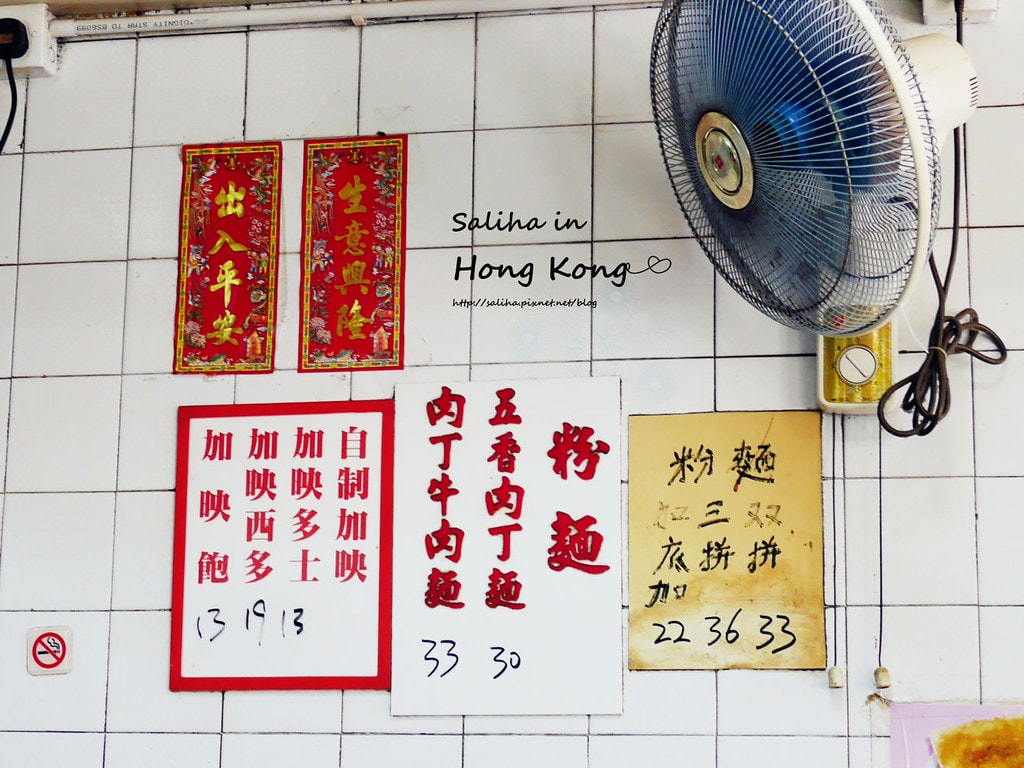 "DIGNITY STAR TO BS6099
出入平安
生意興隆
Saliha in
Hong Kong
http://saliha.pixnet.net/blog
自制加映
加映多士
加映西多
加映飽
13 19 13
粉麵
五香肉丁麵
肉丁牛肉麵
33 30
粉麵
双拼
三拼
加底
加
22 36 33